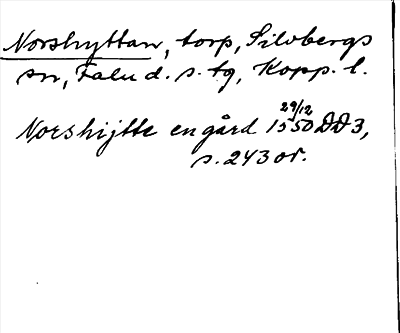 Norshyttan, torp, Silvbergs
sn, Falu d. s. tg, Kopp. l.
29/12
Norshijtte en gård 1550 DD 3,
s. 243 or.